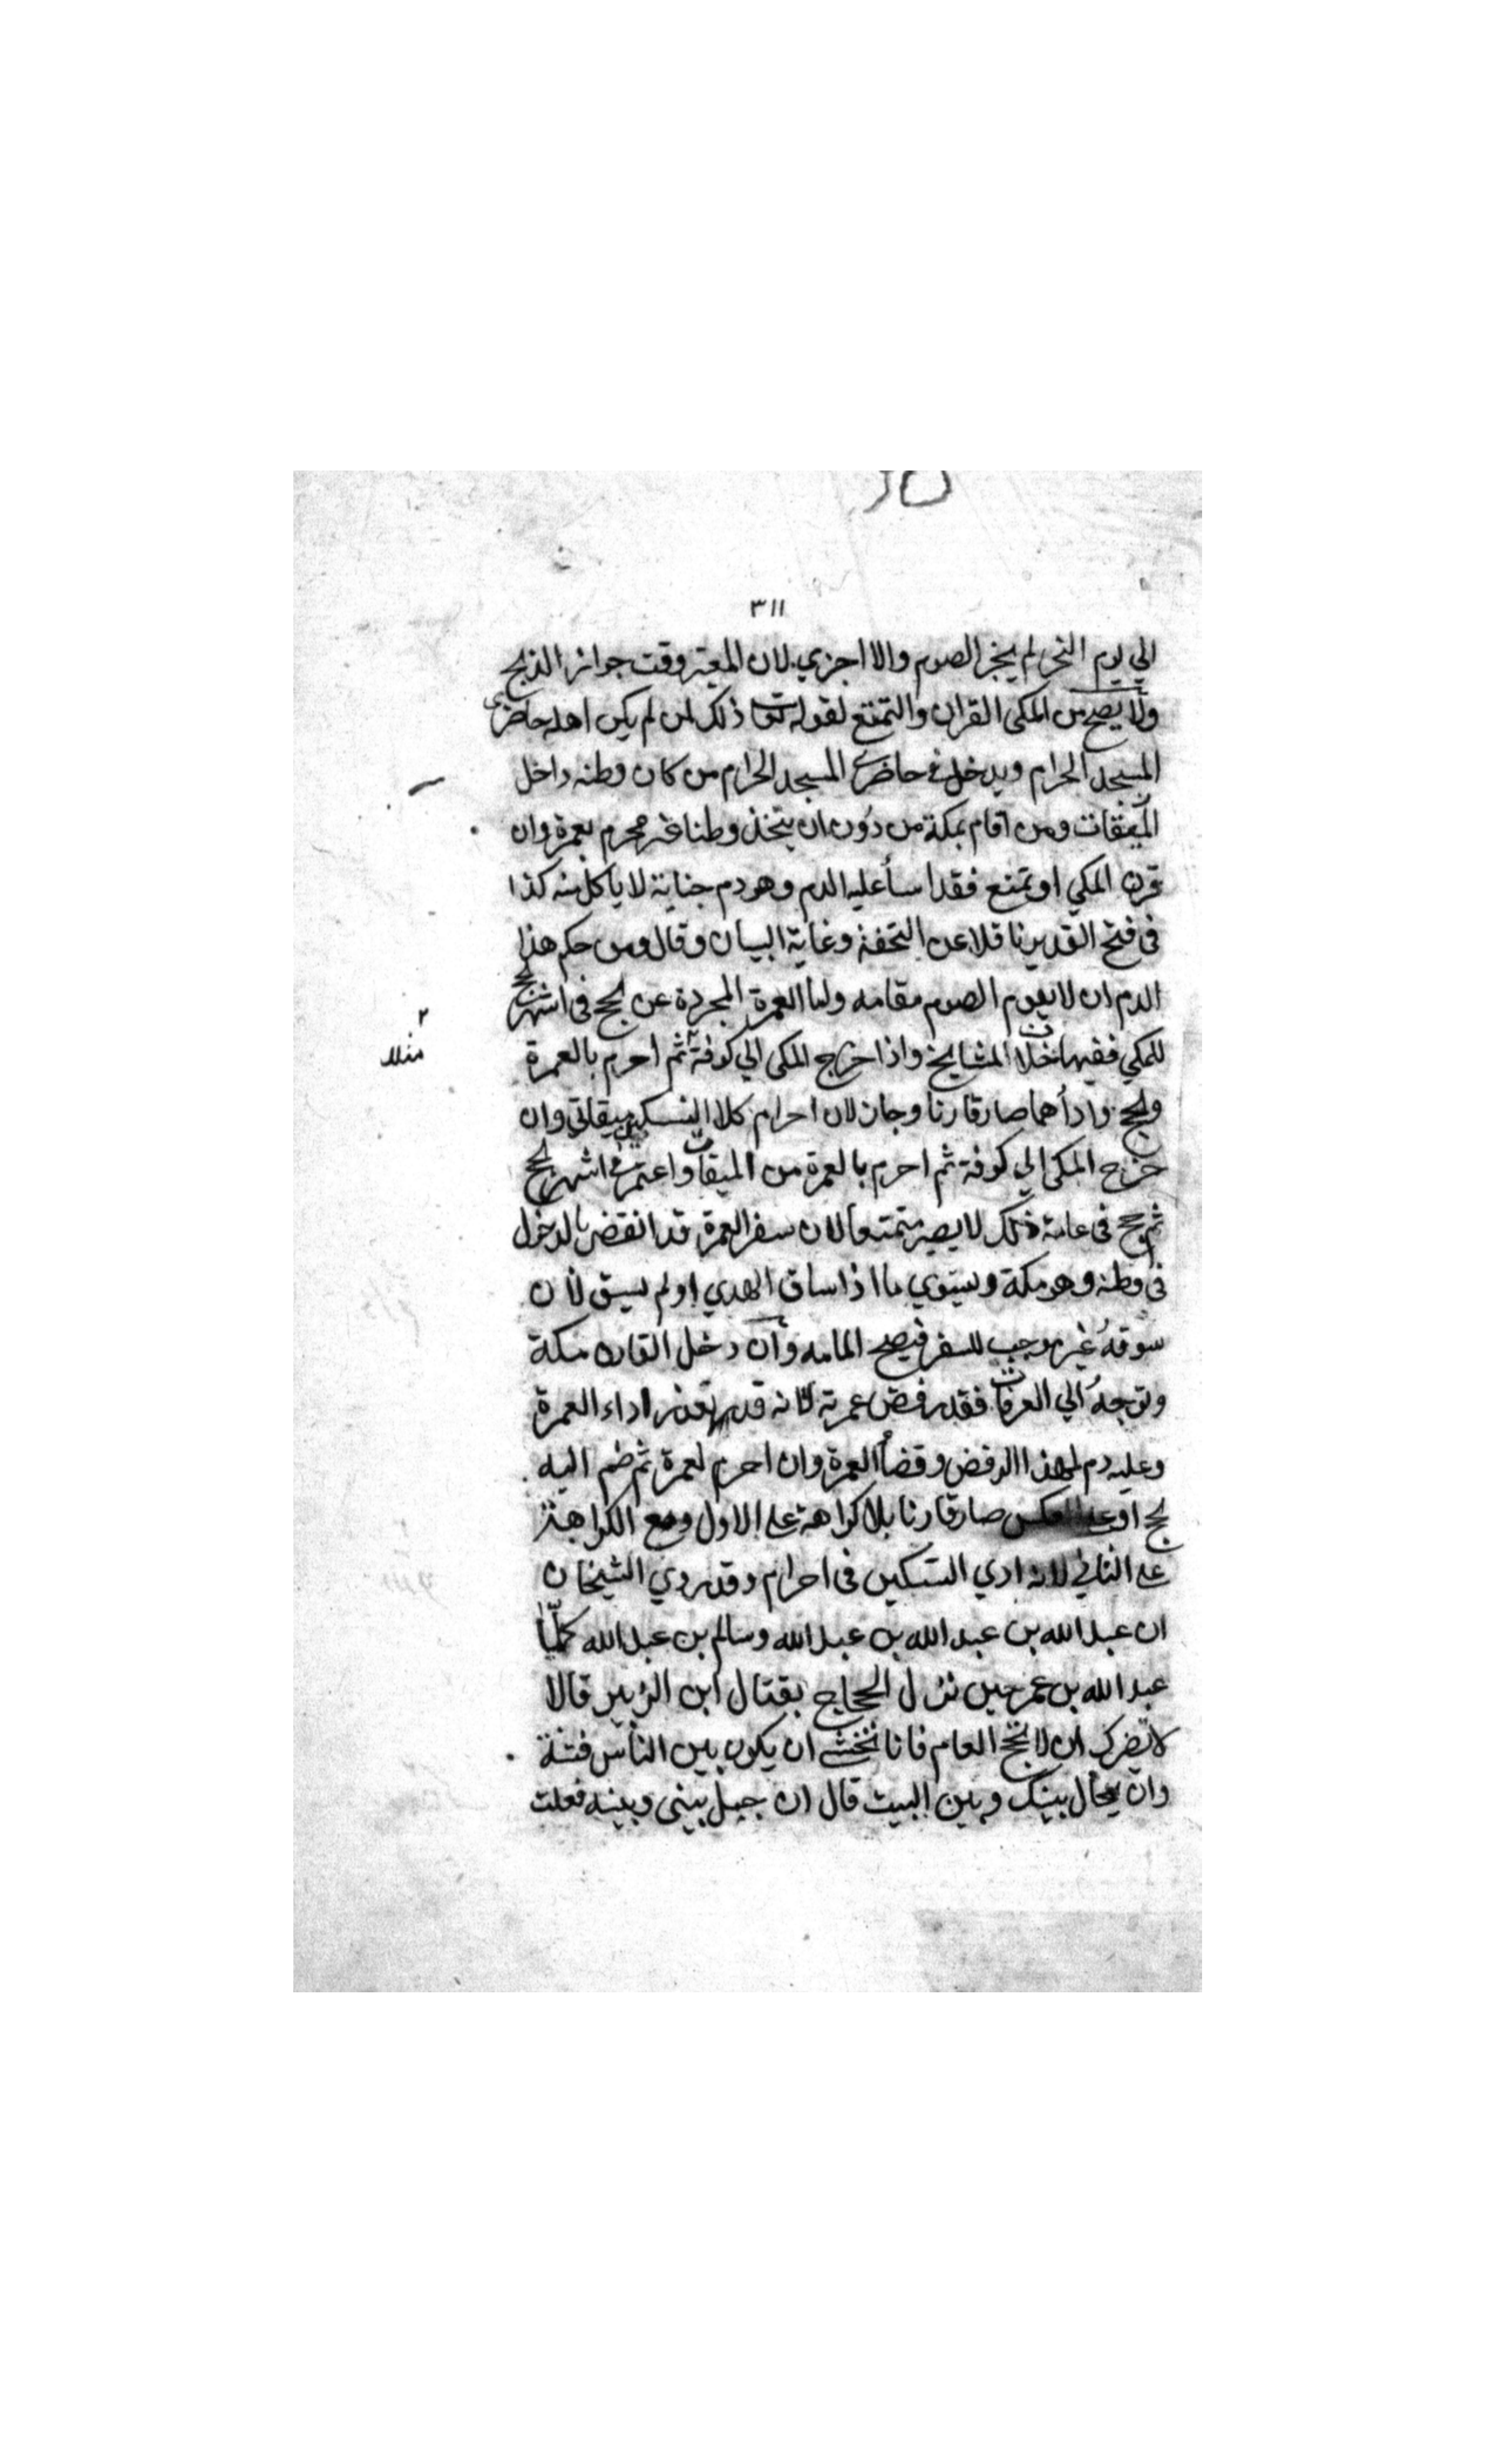 ٣١١
الي يوم النحر لم يجز الصوم والا اجزي لان المعتبر وقت جواز الذبح
ولا يصح من المكي القران والتمتع لقوله تعا ذلك لمن لم يكن اهله حاضري
المسجد الحرام ويدخل في حاضري المسجد الحرام من كان وطنه داخل
الميقات ومن اقام بمكة من دون ان يتخذ وطنا محرم بعمرة وان
قرن المكي او تمتع فقد اسأ عليه الدم وهو دم جناية لا ياكل منه كذا
في فتح القدير ناقلا عن التحفة وغاية البيان وقال ومن حكم هذا
الدم ان لا يقوم الصوم مقامه واما العمرة المجردة عن الحج في اشهر الحج
للمكي ففيها خلاف المشايخ واذا خرج المكي الي كوفة ثم احرم بالعمرة
والحج وادأهما صار قارنا وجاز لان احرام كلا النسكين ميقاتي وان
خرج المكي الي كوفة ثم احرم بالعمرة من الميقات واعتمر في اشهر الحج
ثم حج في عامة ذلك لا يصير متمتعا لان سفر العمرة قد انقض بالدخول
في وطنه وهو مكة ويستوي ما اذا ساق الهدي او لم يسق لان
سوقه غير موجب للسفر فيصح المامه وان دخل القارن مكة
وتوجه الي العرفات فقد رفض عمرته لانه قد تعذر اداء العمرة
وعليه دم لهذا الرفض وقضأ العمرة وان احرم لعمرة ثم ضم اليه
لحج او علي العكس صار قارنا بلا كراهة علي الاول ومع الكراهة
علي الثاني لانه ادي النسكين في احرام وقد روي الشيخان
ان عبد الله بن عبد الله بن عبد الله وسالم بن عبد الله كلّما
عبد الله بن عمر حين نزل الحجاج بقتال ابن الزبير قالا
لا يضرك ان لا تحج العام فانا نخشي ان يكون بين الناس فتنة
وان يحال بينك وبين البيت قال ان حيل بيني وبينه فعلت